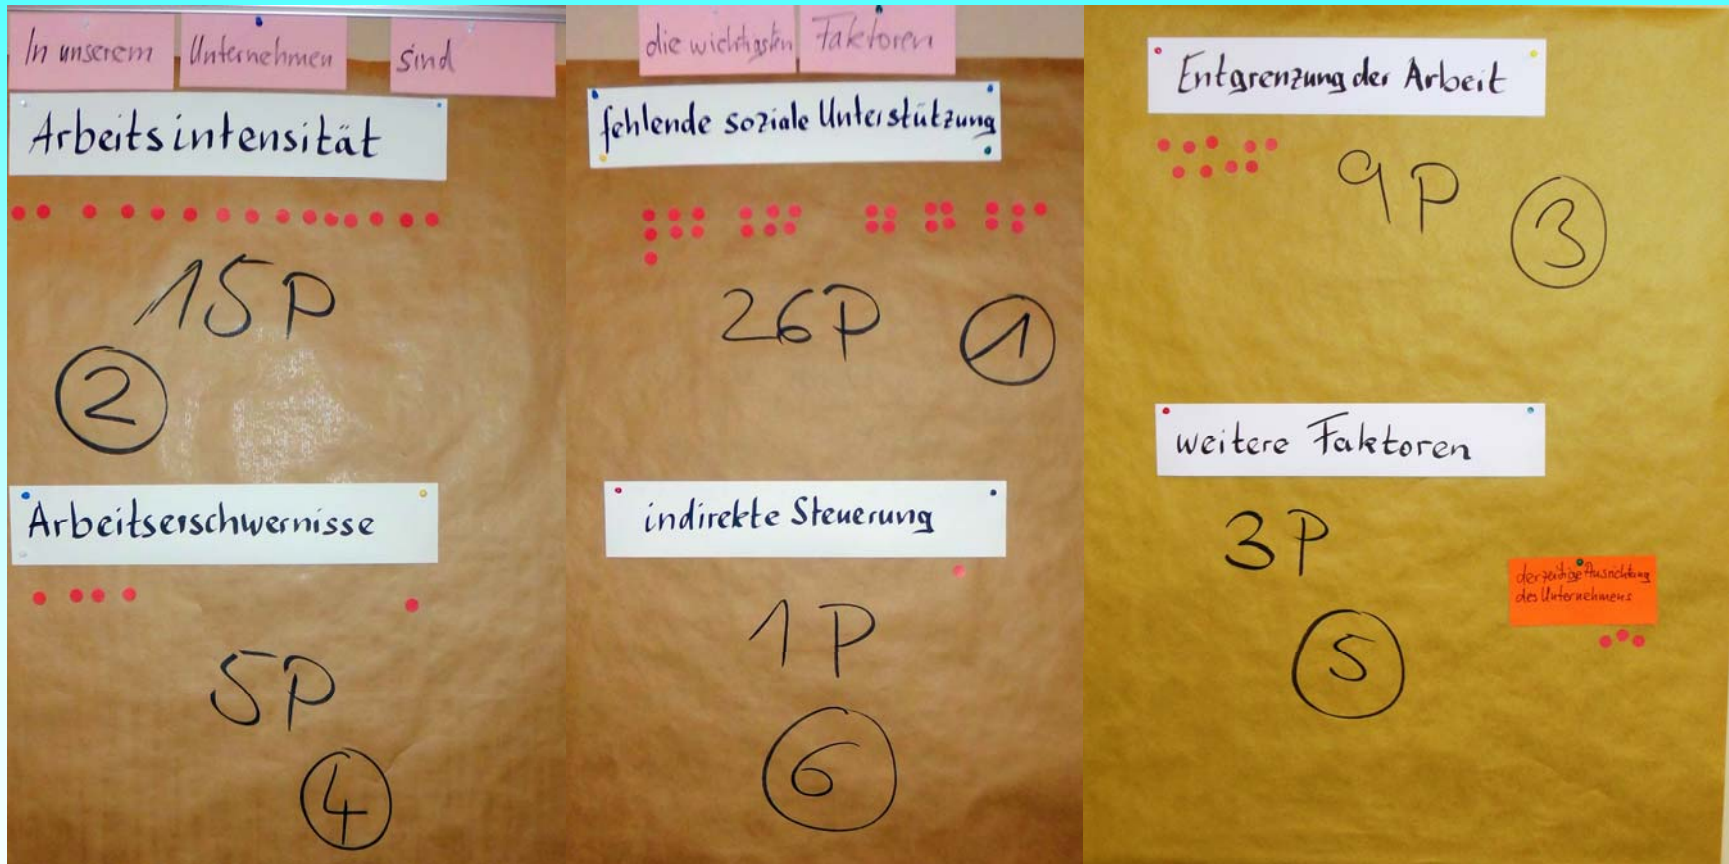 In unserem Unternehmen sind
die wichtigsten Faktoren
Arbeitsintensität
15P
2
Arbeitserschwernisse
5P
4
fehlende soziale Unterstützung
26P
1
indirekte Steuerung
1P
6
Entgrenzung der Arbeit
9P
3
weitere Faktoren
3P
derzeitige Ausrichtung
des Unternehmens
5